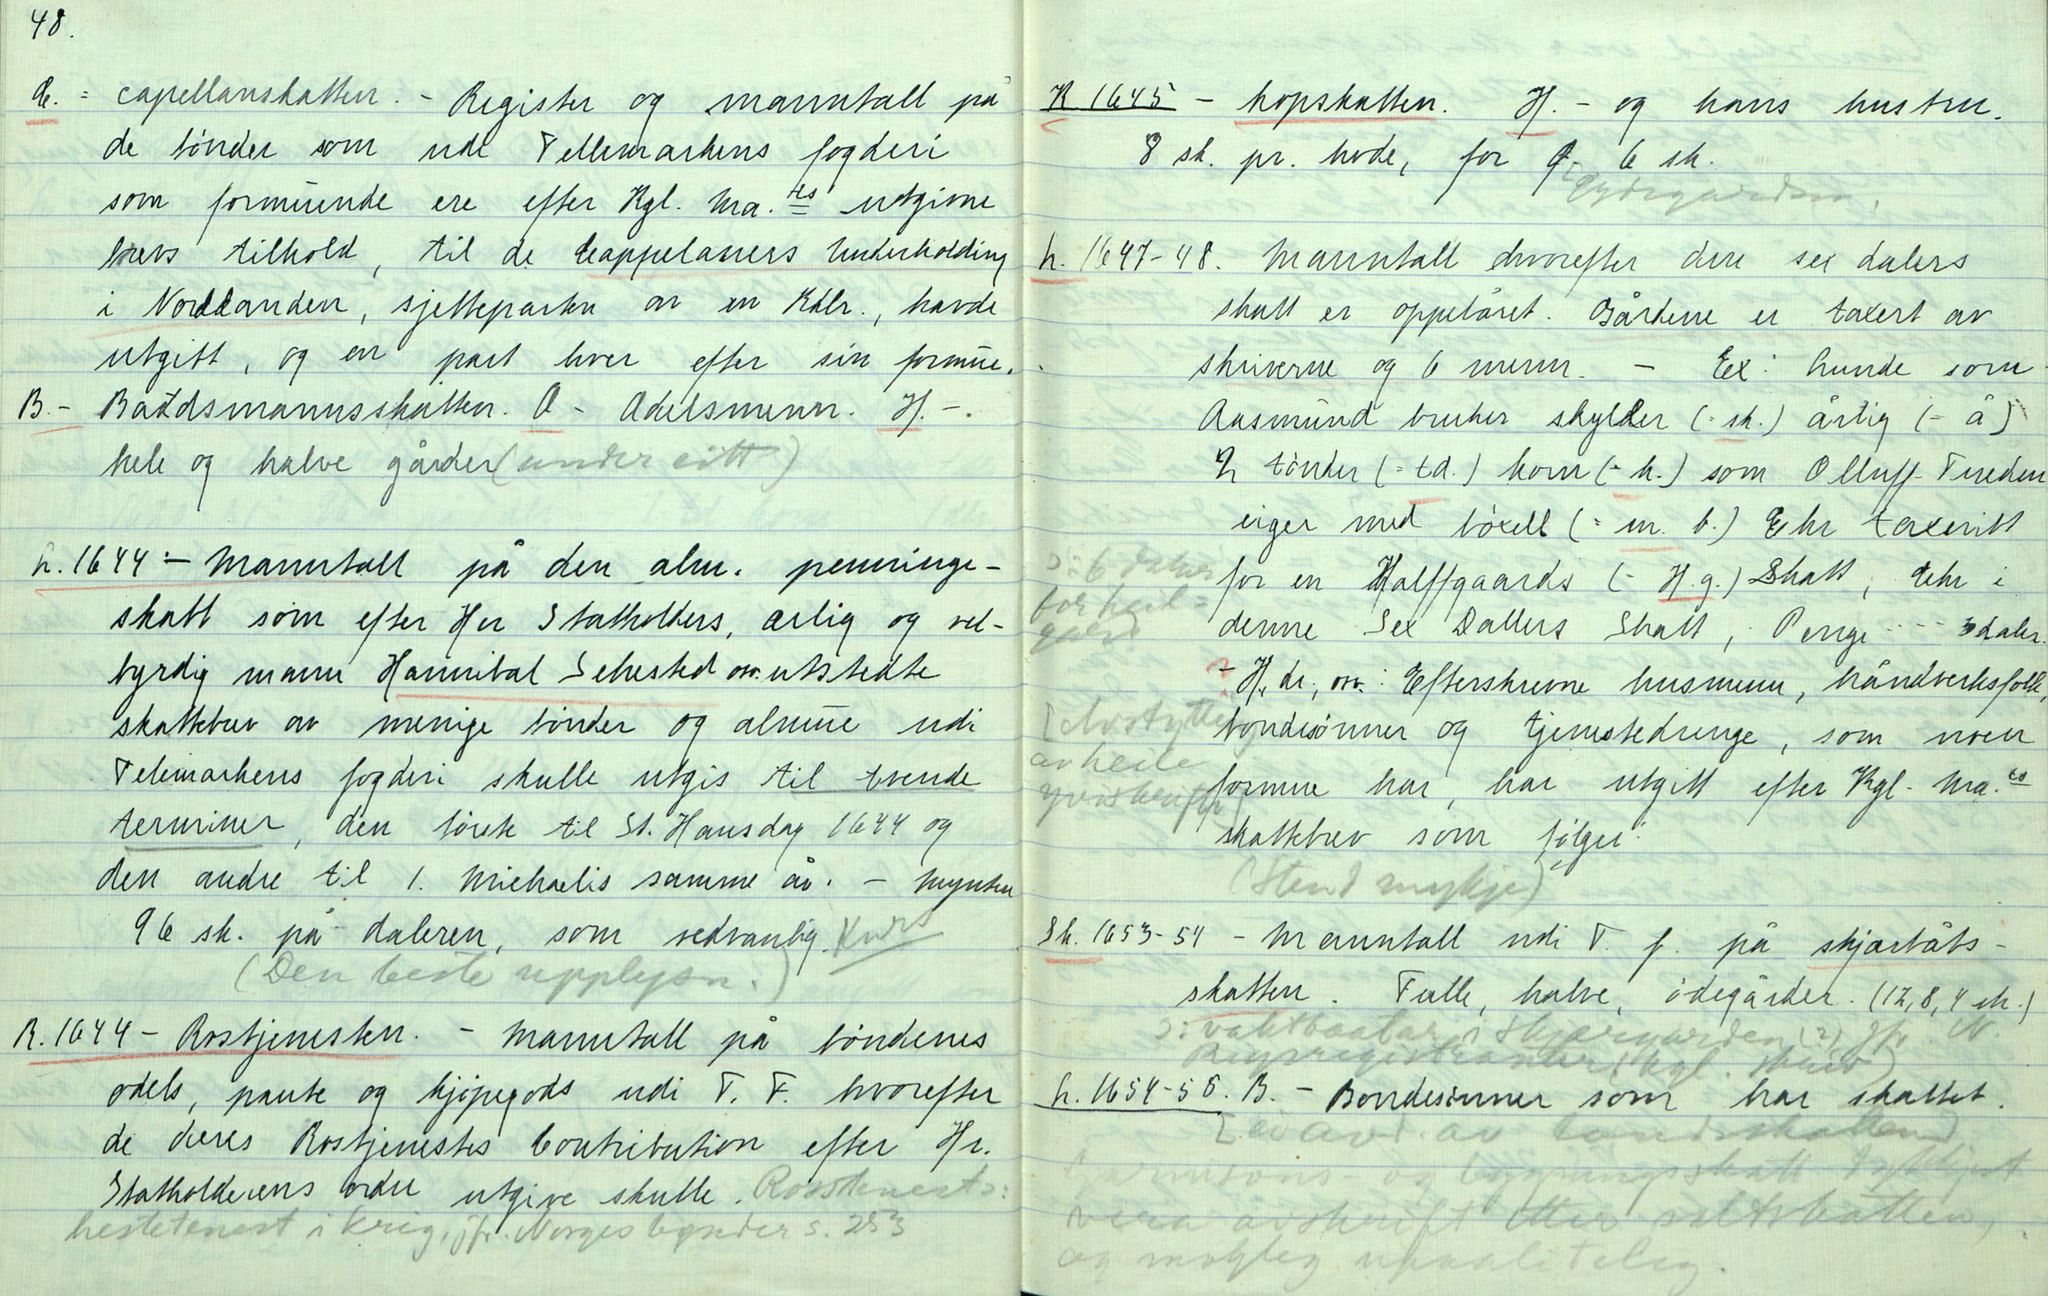 48.
C. = capellanskatten. - Register og manntall på
de bönder som udi Tellemarkens fogderi
som formüende ere efter Kgl. Ma.ts utgivne
brevs tilhold, til de Cappelaners Underholding
i Nordlanden, sjetteparten av en Rdlr., havde
utgitt, og en part hver efter sin formüe.
B. - Baadsmannsskatten. A - Adelsmenn. H. -.
hele og halve gårder (under eitt)
h. 1644 :- Manntall på den alm. penninge-
skatt som efter Her Statholders, ærlig og vel-
byrdig mann Hannibal Sehested osv. utstedte
skattebrev av menige bönder og almüe udi
Telemarkens fogderi skulle utgis til tvende
terminer, den förste til St. Hansdag 1644 og
den andre til 1. Michaelis samme år. - Mynten
96 sk. på daleren, som vedvanlig. Kurs
(Den beste upplysn.)
R. 1644 - Rostjenesten. - Manntall på böndenes
odels, pante og kjöpegods udi T. F. hvorefter
de deres Rostjenestes Contribution efter Hr.
Statholderens ordre utgive skulle. Rosstenest ɔ:
hestetenest i krig, jfr. Norges bønder s. 253
K 1645 - kopskatten. H. - og hans hustru.
8 sk. pr. hode, for Ø- 6 sk.
Øydegarden.
h. 1647-48. Manntall hvorefter den sex dalers
skatt er oppebåret. Gårdene er taxert av
skriverne og 6 menn. - Ex: Lunde som
Aasmund bruker skylder (= sk.) årlig (= å)
2 tönder (= td.) korn (= k.) som Olluff Tveden
eiger med böxell (= m. b.) Ehr taxeritt
ɔ: 6 daler for heil= gard
for en Halffgaards (= H.g.) Skatt, Ehr i
denne Sex Dallers Skatt, Penge ---- 3 daler.
- H. dr., osv.: Efterskrevne husmenn, håndverksfolk,
bondesönner og tjenestedrenge, som noen
formue har, har utgitt efter Kgl. Ma.ts
skattebrev som fölger:
[Avstytting av heile yvirskrifti]
(Stend mykje)
Sk. 1653-54 - Manntall udi T. f. på skjærbåts-
skatten. Fulle, halve, ödegårder. (12, 8, 4 sk.)
ɔ: vaktbaatar i skjærgarden (?) jfr. N.
Riggsregistranter (kgl. skriv)
h. 1654-55. B. - Bondesönner som har skattet.
og bygningsskatt
vera avskrift etter saltskatten,
og mogleg upaalitelig.